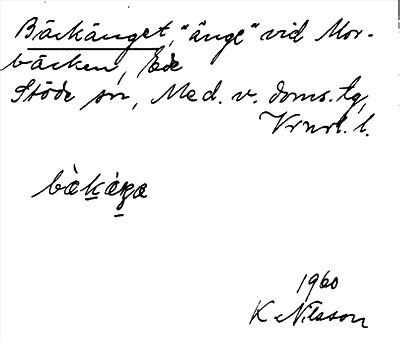 Bäckänget, "änge" vid Mor-
bäcken, Ede
Stöde sn, Med. v. doms. tg,
Vrnrl. l.
bæ̀kæ̀ŋa
1960
K Nilsson